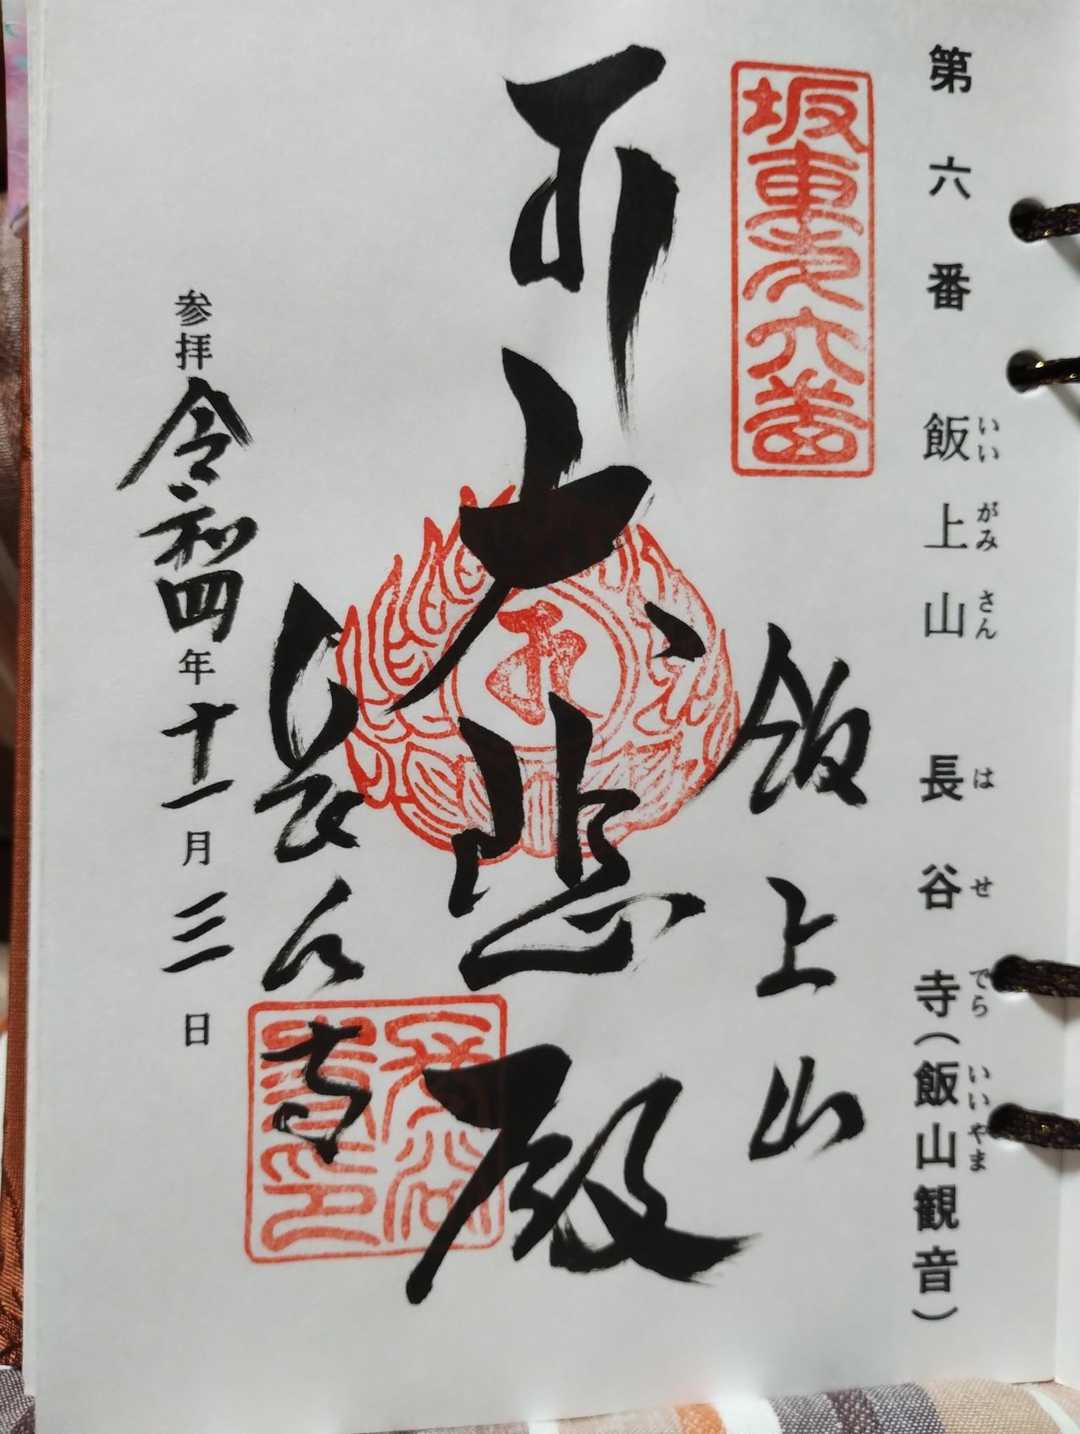 第六番 飯上山 長谷寺(飯山観音)
いいがみさん はせでら いいやま
坂東㐧六番
飯上山
大悲殿
長谷寺
長谷寺印
参拝 令和四年十一月三日